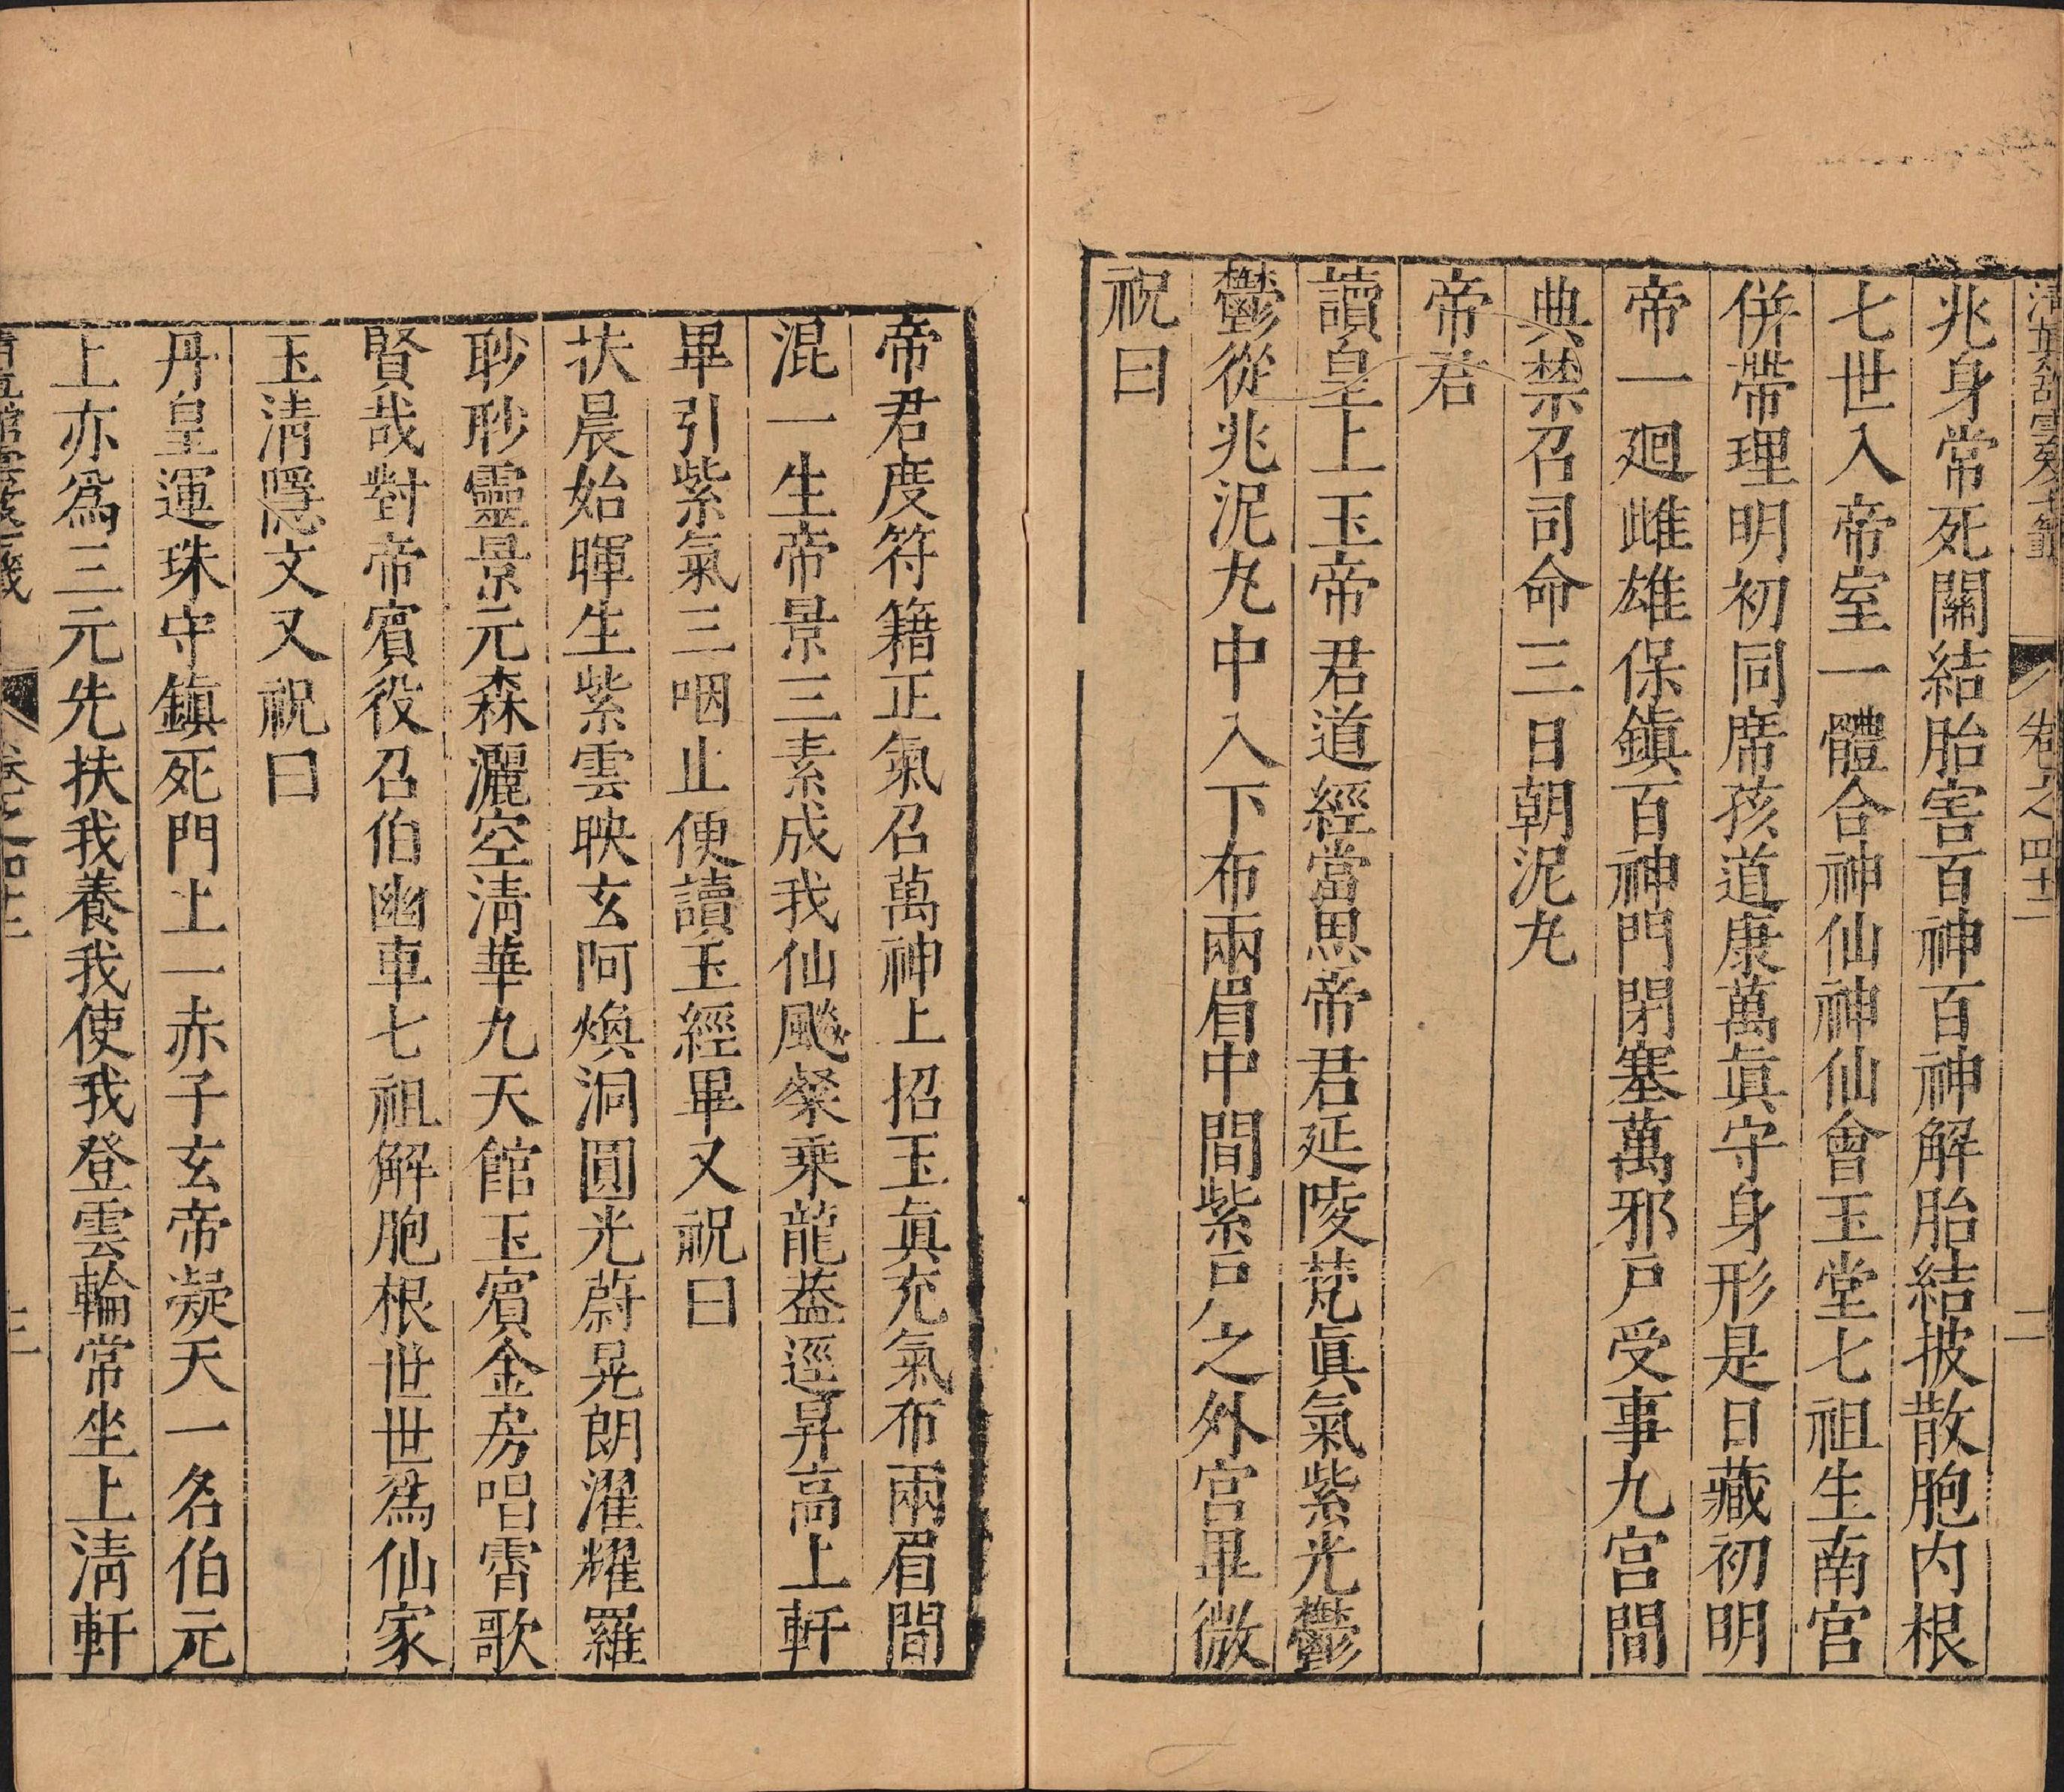 清眞館雲笈七籤 卷之四十二 二
兆身常死關結胎害百神百神解胎結披散胞内根
七世入帝室一體合神仙神仙會玉堂七祖生南宮
併帶理明初同席孩道康萬眞守身形是日藏初明
帝一廻雌雄保鎭百神門閉塞萬邪戸受事九宮間
典禁召司命三日朝泥丸
帝君
讀皇上玉帝君道經當思帝君延陵梵眞氣紫光鬱
鬱從兆泥丸中入下布兩眉中間紫戸之外宮畢微
祝曰
帝君度符籍正氣召萬神上招玉眞充氣布兩眉間
混一生帝景三素成我仙飈粲乘龍葢逕昇高上軒
畢引紫氣三咽止便讀玉經畢又祝曰
扶晨始暉生紫雲映玄阿煥洞圓光蔚晃朗濯耀羅
眇眇靈景元森灑空淸華九天館玉賓金房唱霄歌
賢哉對帝賓役召伯幽車七祖解胞根世世爲仙家
玉淸隱文又祝曰
丹皇運珠守鎭死門上一赤子玄帝凝天一名伯元
上亦爲三元先扶我養我使我登雲輪常坐上淸軒
清眞館雲笈七籤 卷之四十二 三